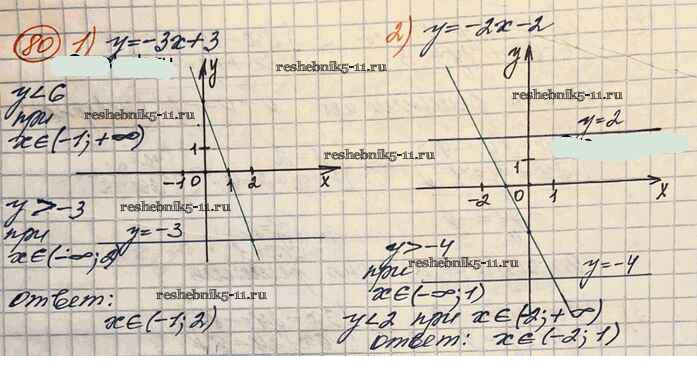 80 1) y=-3x+3
y<6
при
x∈(-1;+∞)
y>-3
при y=-3
x∈(-∞;2)
ответ:
x∈(-1;2)
y
1
-1 0 1 2 x
reshebnik5-11.ru
reshebnik5-11.ru
reshebnik5-11.ru
reshebnik5-11.ru
reshebnik5-11.ru
2) y=-2x-2
y
y=2
1
-2 0 1 x
reshebnik5-11.ru
reshebnik5-11.ru
y>-4
при
x∈(-∞;1)
y=-4
reshebnik5-11.ru
y<2 при x∈(-2;+∞)
ответ: x∈(-2;1)